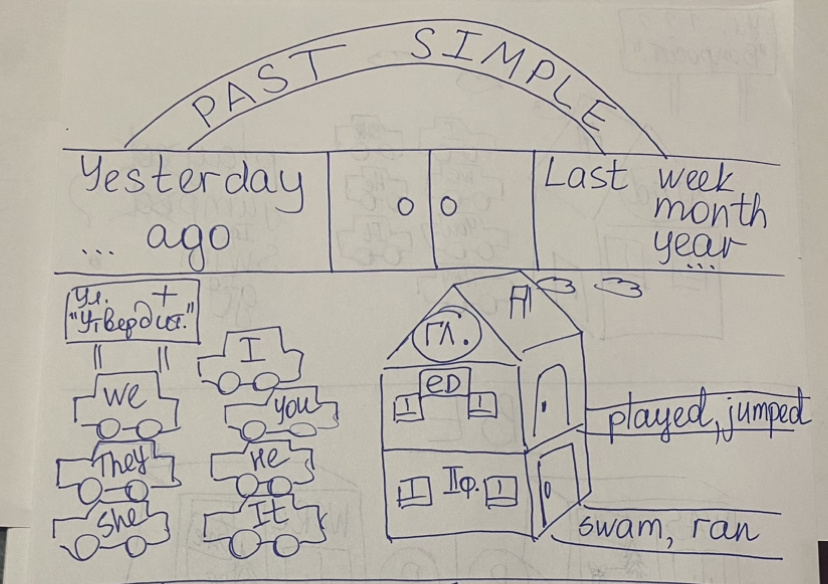 PAST SIMPLE
Yesterday
... ago
Last week
month
year
...
Ул. +
"Утвердит."
I
We
you
They
He
She
It
Гл.
ed
II ф.
played, jumped
swam, ran